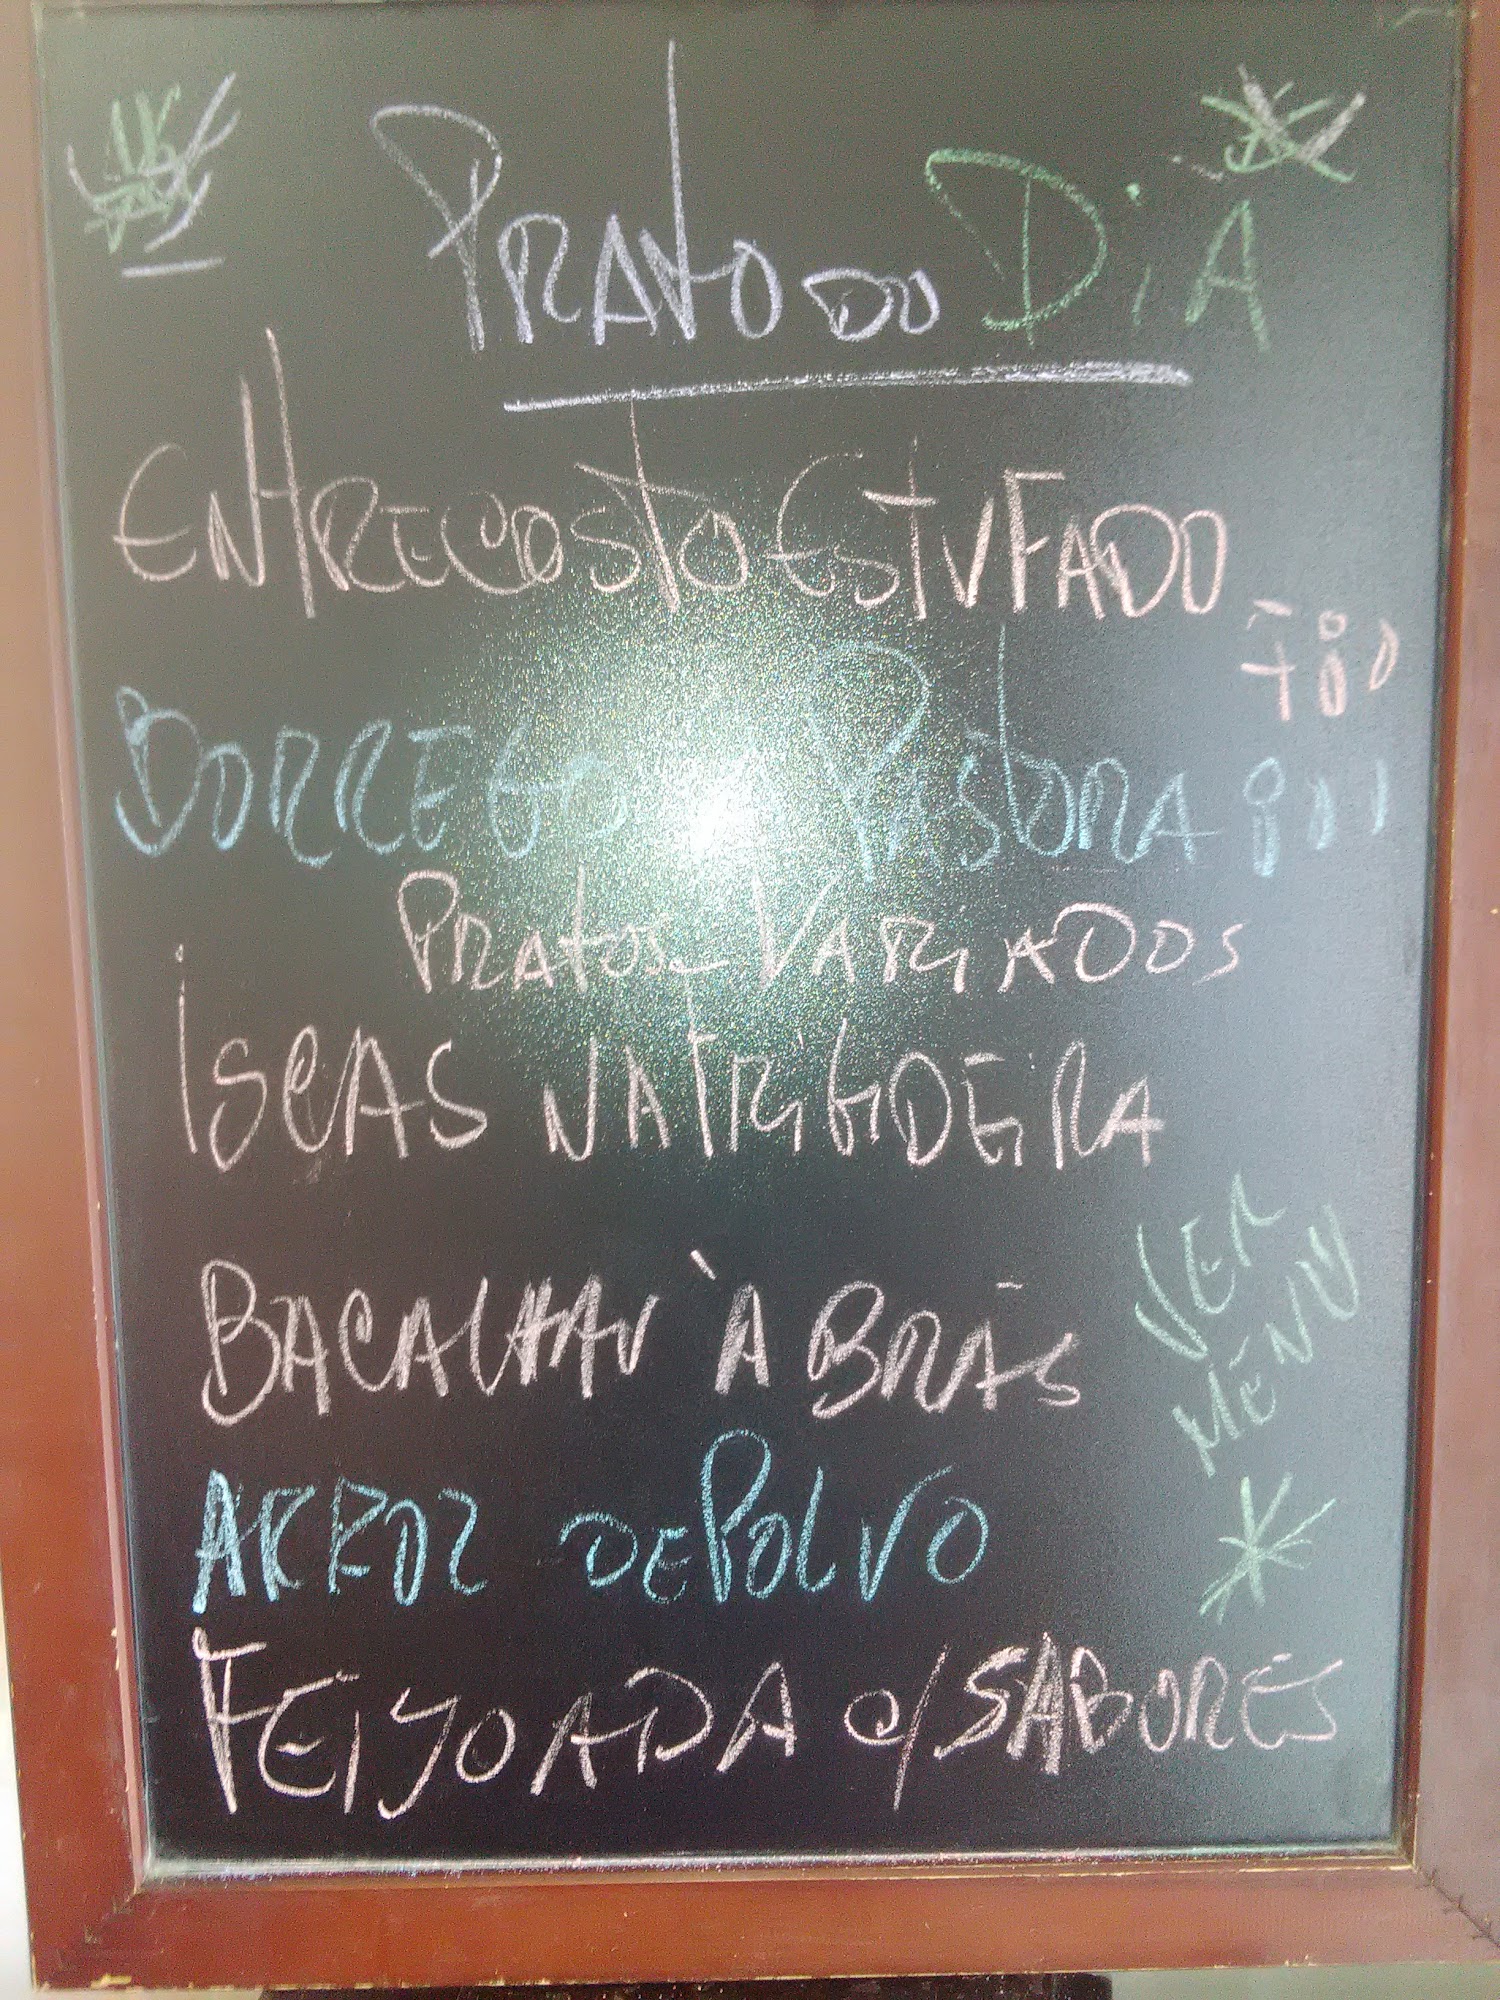 PRATO DO DiA
ENTRECOSTO ESTUFADO
7,80
BORREGO PASTORA
PRATOS VARIADOS
iSCAS NA FRiGiDEiRA
BACALHAU À BRÁS
VER
MÉNU
ARROZ DE POLVO
FEIJOADA C/ SABORES